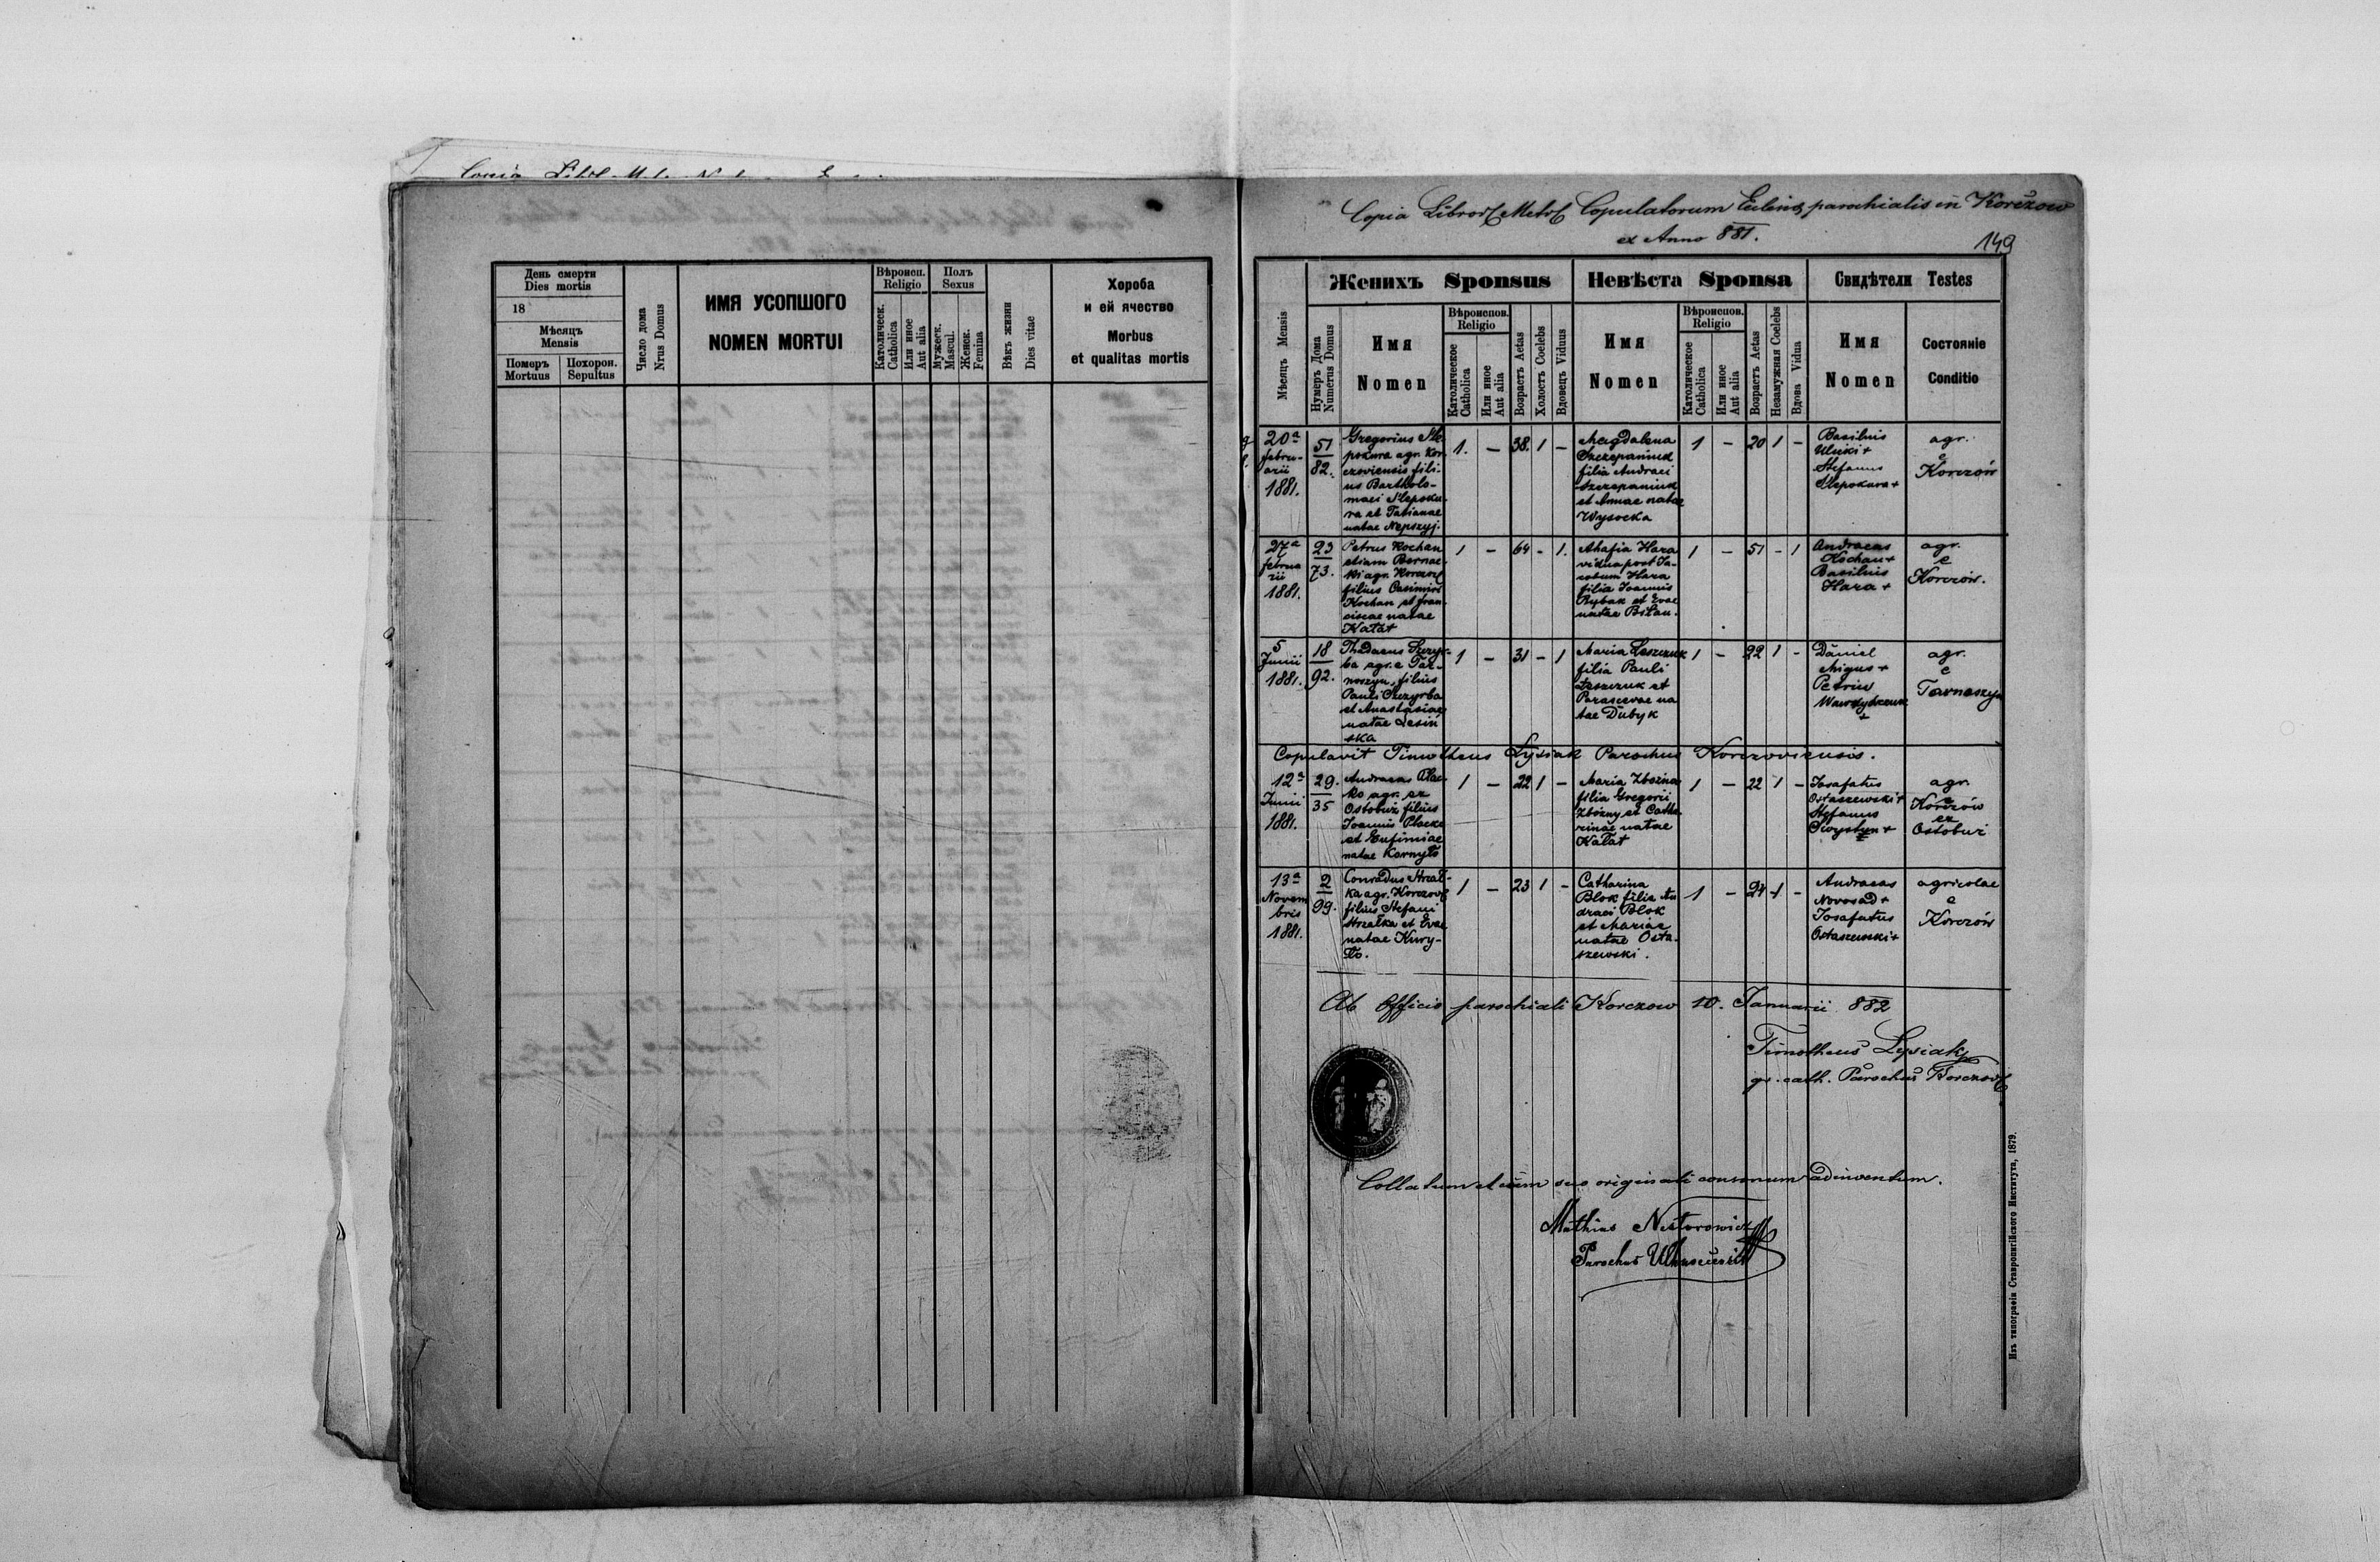 День смерти
Dies mortis
18
Мѣсяцъ
Mensis
Померъ
Mortuus
Похорон.
Sepultus
Число дома
Nrus Domus
ИМЯ УСОПШОГО
NOMEN MORTUI
Вѣроисп.
Religio
Католическ.
Catholica
Или иное
Aut alia
Полъ
Sexus
Мужеск.
Mascul.
Женск.
Femina
Вѣкъ жизни
Dies vitae
Хороба
и ей ячество
Morbus
et qualitas mortis
Copia Libror Metr Copulatorum Eccles parochialis in Korczow
ex Anno 881.
149
Мѣсяцъ Mensis
Женихъ Sponsus
Нумеръ Дома
Numerus Domus
Имя
Nomen
Вѣроиспов.
Religio
Католическое
Catholica
Или иное
Aut alia
Возрастъ Aetas
Холостъ Coelebs
Вдовецъ Viduus
Невѣста Sponsa
Имя
Nomen
Вѣроиспов.
Religio
Католическое
Catholica
Или иное
Aut alia
Возрастъ Aetas
Незамужная Coelebs
Вдова Vidua
Свидѣтели Testes
Имя
Nomen
Состояніе
Conditio
20a
febru-
arii
1881.
51
82.
Gregorius Sle
pokura agr. Kor
czoviensis fili-
us Bartholo-
maei Slepoku-
ra et Tatianae
natae Nepszyj.
1. — 38. 1 —
Magdalena
Szczepaniuk
filia Andraei
Szczepaniuk
et Annae natae
Wysocka
1 — 20 1 —
Basilius
Ulicki +
Stefanus
Slepokura +
agr.
e
Korczów
27a
februa
rii
1881.
23
73.
Petrus Kochan
etiam Bernac-
ki agr. Korczov
filius Casimiri
Kochan et Fran
ciscae natae
Kałat
1 — 64 - 1.
Ahafia Hara
vidua post Ja-
cobum Hara
filia Joannis
Rybak et Evae
natae Biłan.
1 — 51 - 1
Andraeas
Kochan +
Basilius
Hara +
agr.
e
Korczów.
5
Junii
1881.
18
92.
Thadaeus Szczyr-
ba agr. e Tar-
noszyn, filius
Pauli Szczyrba
et Anastasiae
natae Lesiń
ska
1 — 31 - 1
Maria Leszczuk
filia Pauli
Leszczuk et
Parascevae na
tae Dubyk
1 — 22 1 -
Daniel
Migus +
Petrus
+
agr.
e
Tarnoszyn
Copulavit Timotheus Lysiak Parochus Korczoviensis.
12a
Junii
1881.
29.
35
Andraeas Plac-
ko agr. ex
Ostobuż filius
Joannis Placko
et Eufimiae
natae Kornyło
1 — 22 1 —
Maria Zbożna
filia Gregorii
Zbożny et Catha
rinae natae
Kałat
1 — 22 1 —
Josafatus
Ostaszewski +
Stefanus
agr.
e
Korczów
ex
Ostobuż
13a
Novem
bris
1881.
2
99.
Conradus Strzał-
ka agr. Korczov
filius Stefani
Strzałka et Evae
natae Kury-
ło.
1 — 23 1 —
Catharina
Blok filia An
draei Blok
et Mariae
natae Osta-
szewski.
1 — 24 1 -
Andraeas
Novosad +
Josafatus
Ostaszewski +
agricolae
e
Korczów
Ab Officio parochiali Korczow 10. Januarii 882
Timotheus Lysiak
gr. cath. Parochus Korczov
Collatum et cum suo originali consonum adinventum.
Mathias Nestorowicz
Parochus
Изъ типографіи Ставропигійского Института, 1879.